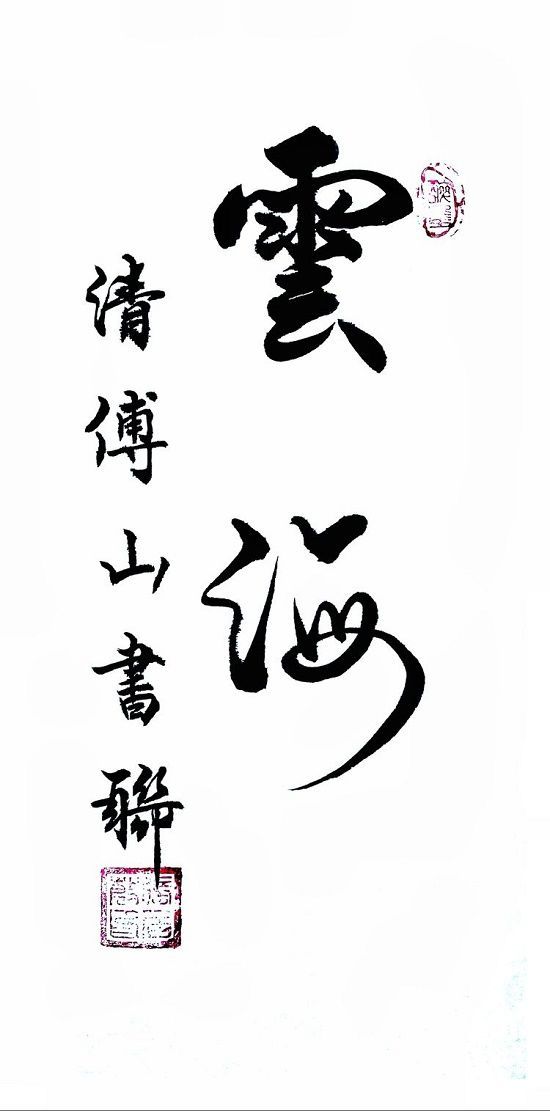 雲海
清傅山書聯